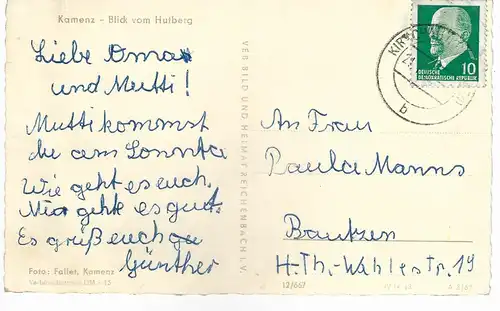 Kamenz - Blick vom Hutberg
Liebe Oma
und Mutti!
Mutti kommst
du am Sonnta
Wie geht es euch.
Mir geht es gut.
Es grüß euch
Günther
Foto: Faller, Kamenz
VER BILD UND HEIMAT REICHENBACH I. V.
10
DEUTSCHE
DEMOKRATISCHE REPUBLIK
b
An Frau
Paula Manns
Bautzen
H-Th.-Wähle str. 19
12/667